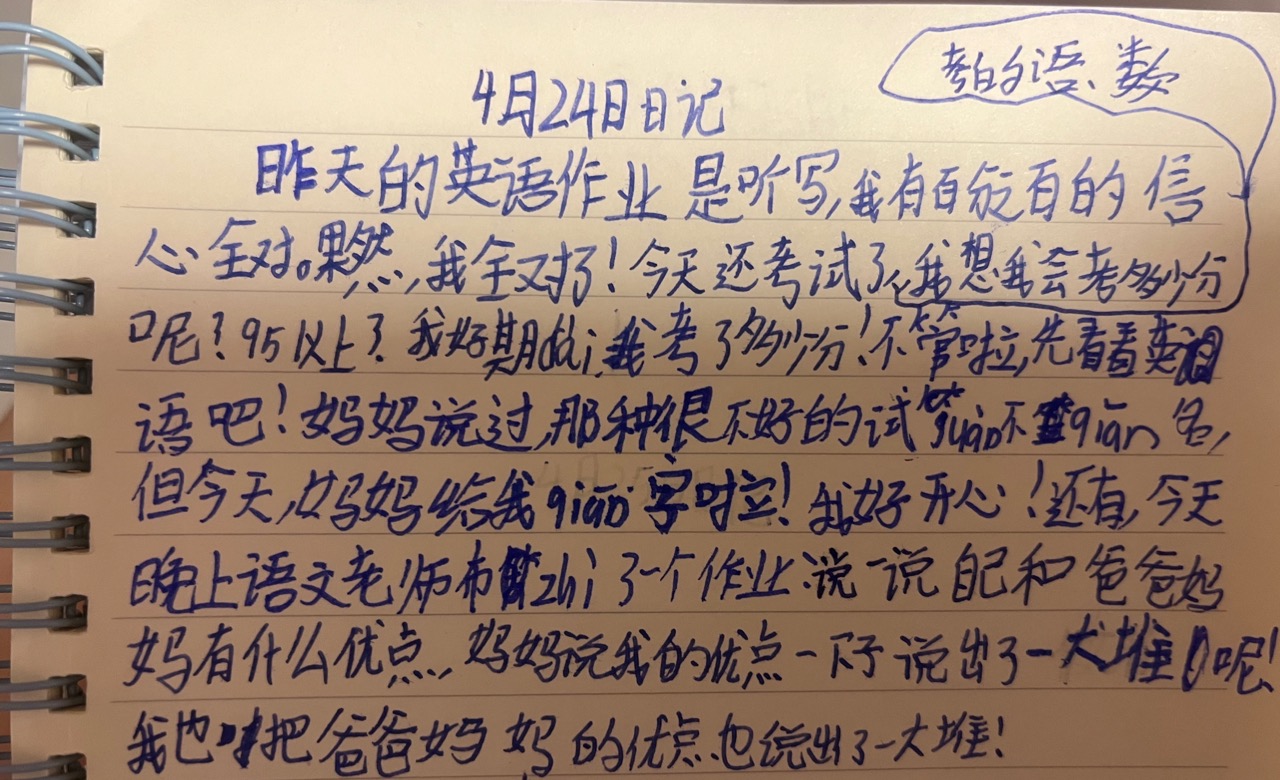 考的语、数
4月24日日记
昨天的英语作业是听写,我有百分百的信
心全对。果然,我全对了!今天还考试了,我想我会考多少分
呢?95以上?我好期dai,我考了多少分!不管啦,先看看英
语吧!妈妈说过,那种很不好的试juàn不qiān名,
但今天,妈妈给我qiān字啦!我好开心!还有,今天
晚上语文老师布zhì了一个作业:说一说自己和爸爸妈
妈有什么优点,妈妈说我的优点一下子说出了一大堆呢!
我也把爸爸妈妈的优点也说出了一大堆!